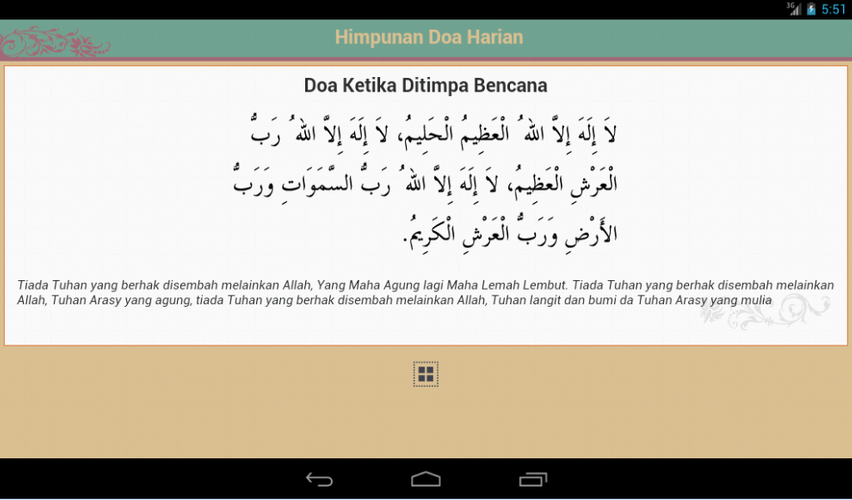 3G 5:51
Himpunan Doa Harian
Doa Ketika Ditimpa Bencana
لاَ إِلَهَ إِلاَّ اللهُ الْعَظِيمُ الْحَلِيمُ، لاَ إِلَهَ إِلاَّ اللهُ رَبُّ
الْعَرْشِ الْعَظِيمُ، لاَ إِلَهَ إِلاَّ اللهُ رَبُّ السَّمَوَاتِ وَرَبُّ
الأَرْضِ وَرَبُّ الْعَرْشِ الْكَرِيمُ.
Tiada Tuhan yang berhak disembah melainkan Allah, Yang Maha Agung lagi Maha Lemah Lembut. Tiada Tuhan yang berhak disembah melainkan
Allah, Tuhan Arasy yang agung, tiada Tuhan yang berhak disembah melainkan Allah, Tuhan langit dan bumi da Tuhan Arasy yang mulia